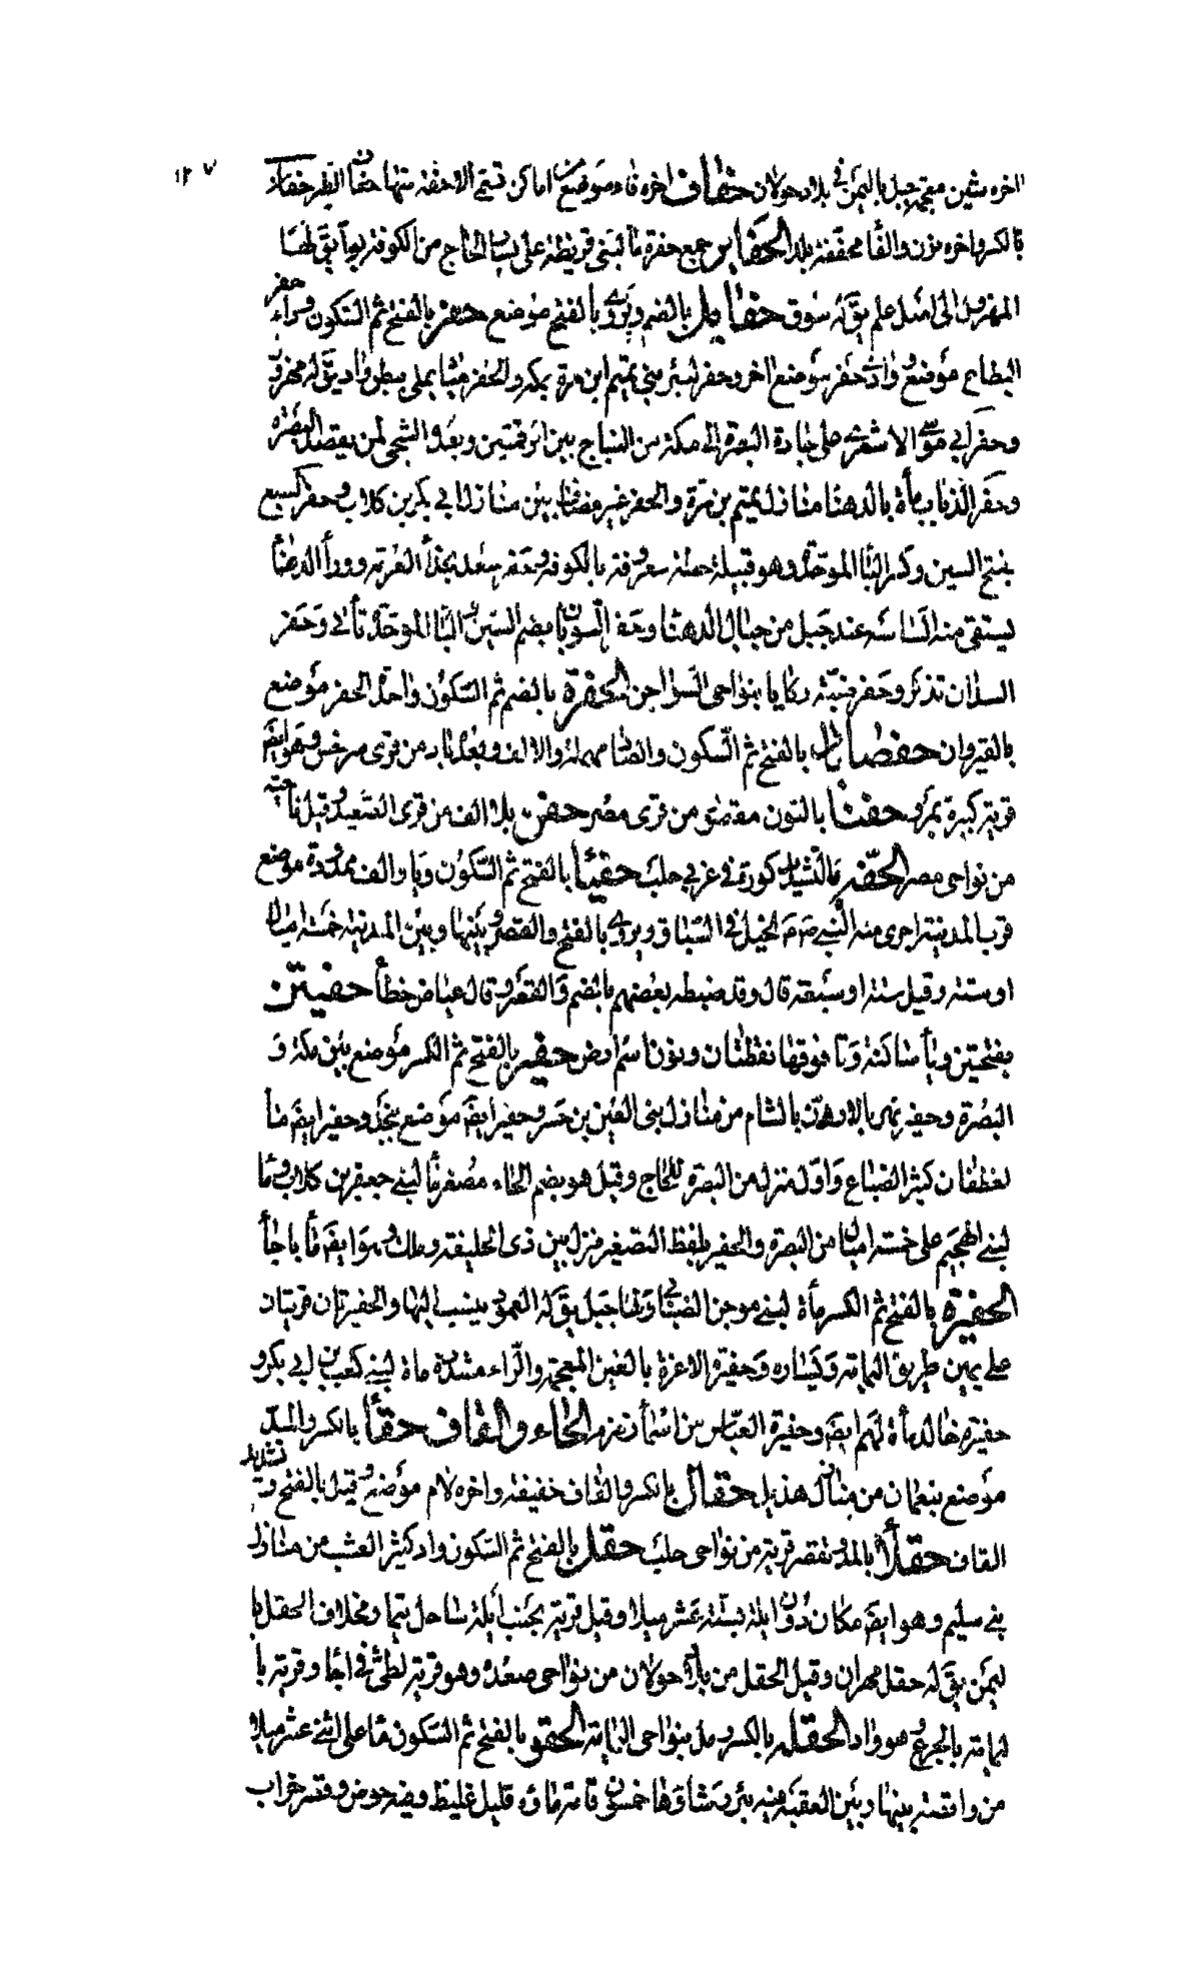 ١٢٧
اخره شين معجمة جبل باليمن في بلاد خولان حفاف اخره فاء موضع اماكن تسمى الاحفة منها حفاف الطير حفان
بالكسر واخره نون والفا مخففة بلد الحفاير جمع حفرة ما لبنى قريظة على يسار الحاج من الكوفة
الى اسفل علم يقآ له سوق حفايل بالضم ويروى بالفتح موضع حفر بالفتح ثم السكون وراء حفر
البطاح موضع وادى حفر موضع اخر وحفر لبئر بنى تيم ابن مرة بمكة والحفر بطن واد يقآ له مهزور
وحفر ابي موسى الاشعري على جادة البصرة الى مكة من النباج بين الرقمتين وبعده الشجى لمن يقصد البصرة
وحفر الرباب مأة بالدهنا منازل تيم بن مرة والحفر غير مضاف بين منازل ابي بكر بن كلاب وحفر السبيع
بفتح السين وكسر البا الموحدة وهو قبيلة معروفة بالكوفة وحفر سعد بحذاء العرمة ووراء الدهنا
يستقى منه عند جبل من جبال الدهنا وحفر السوبان بضم السين البا الموحدة تأتي وحفر
السيدان تذكر وحفر ضبة ركايا بنواحى الشواجن الحفرة بالضم ثم السكون واحدة الحفر موضع
بالقيروان حفصاباد بالفتح ثم السكون والصاد مهملة والالف وبعدها بد من قرى سرخس وهو ايضآ
قرية كبيرة بمرو حفنا بالنون مقصور من قرى مصر حفن بلا الف من قرى الصعيد وقيل ناحية
من نواحى مصر الحفة بالتشديد كورة في غربي حلب حفيا بالفتح ثم السكون ويا والف ممدودة موضع
قرب المدينة اجرى منه النبي ص م الخيل في السباق ويروى بالفتح والقصر بينها وبين المدينة خمسة اميال
او ستة وقيل ستة او سبعة قال وقد ضبطه بعضهم بالضم والقصر قال عياض خطأ حفيتن
بفتحتين ويأ ساكنة وتا فوقها نقطتان ونون اسم ارض حفير بالفتح ثم الكسر موضع بين مكة و
البصرة وحفير نهر بالاردن بالشام من منازل بنى القين بن جسر وحفير ايضآ موضع بنجد وحفير ايضآ مأ
لغطفان كثير الضباع واول منزل من البصرة للحاج وقيل هو بضم الحاء مصغر ما لبنى جعفر بن كلاب وما
لبنى الهجيم على خمسة اميال من البصرة والحفير بلفظ التصغير منزل بين ذى الحليفة وملل وهو ايضآ مأ باجأ
الحفيرة بالفتح ثم الكسر مأة لبنى موجن الضبابي ولها جبل يقآ له العمود ينسب اليها والحفيرتان قريتان
على يمين طريق اليمامة ويساره وحفيرة الاغر بالغين المعجمة والراء مشددة ماءة لبنى كعب بن ابي بكر و
حفيرة خالد مأة لهم ايضآ وحفيرة العباس من اسمأ زمزم الحاء والقاف حقأ بالكسر والمد
موضع بنعمان من منازل هذيل حقال بالكسر والقاف خفيفة واخره لام موضع وقيل بالفتح وتشديد
القاف حقلا بالمد وتقصر قرية من نواحى حلب حقل بالفتح ثم السكون واد كثير العشب من منازل
بنى سليم وهو ايضآ مكان دون ايلة بستة عشر ميلا وقيل قرية بجنب ايلة ساحل تيما ومخلاف الحقل با
ليمن يقآ له حقل مهران وقيل الحقل من بلاد خولان من نواحى صعدة وهو قرية لطئ في اجا وقرية با
ليمامة بالجرع وهو واد الحقلة بالكسر رمل بنواحى اليمامة الحقو بالفتح ثم السكون مأ على اثنى عشر ميلا
من واقصة بينها وبين العقبة فيه بئر رشاؤها خمسون قامة ماؤه قليل غليظ وفيه حوض وقصر خراب